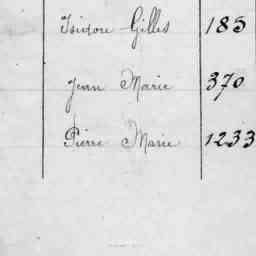 Isidore Gilles 185
Jean Marie 370
Pierre Marie 1233